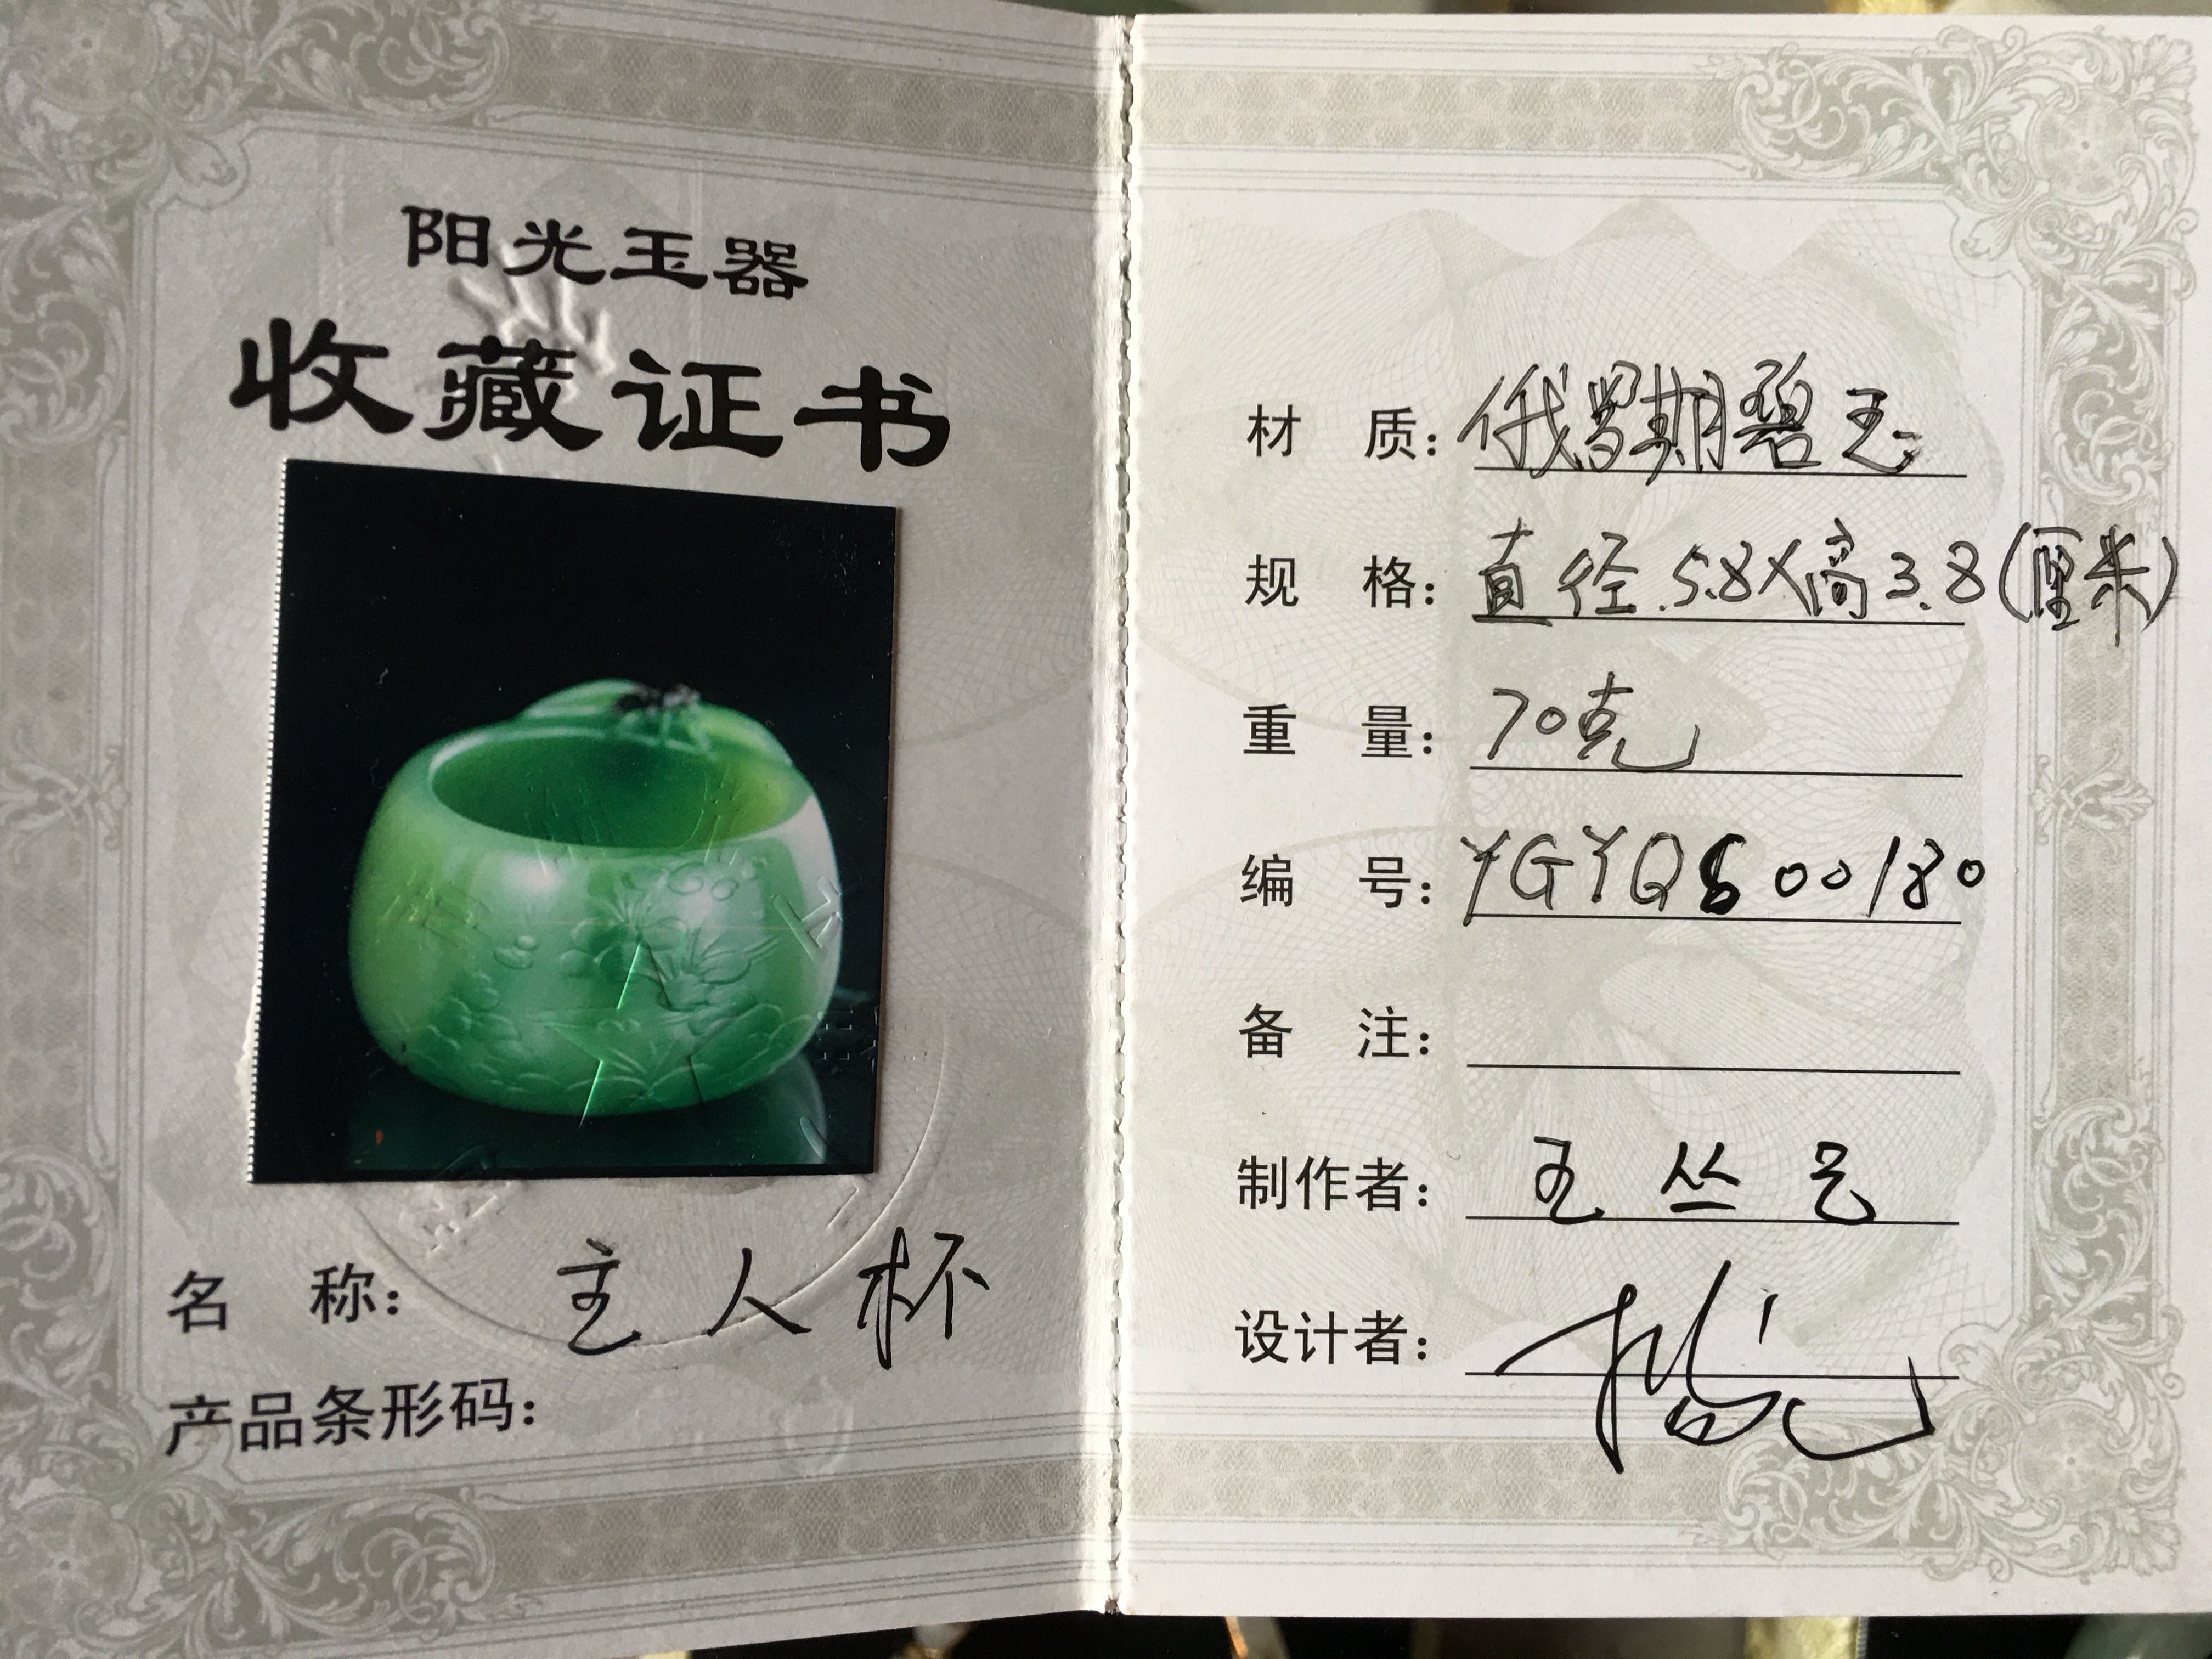 阳光玉器
收藏证书
名 称： 主人杯
产品条形码：
材 质：俄罗斯碧玉
规 格：直径5.8X高3.8(厘米)
重 量：70克
编 号：YGYQ600180
备 注：
制作者：王丛艺
设计者：